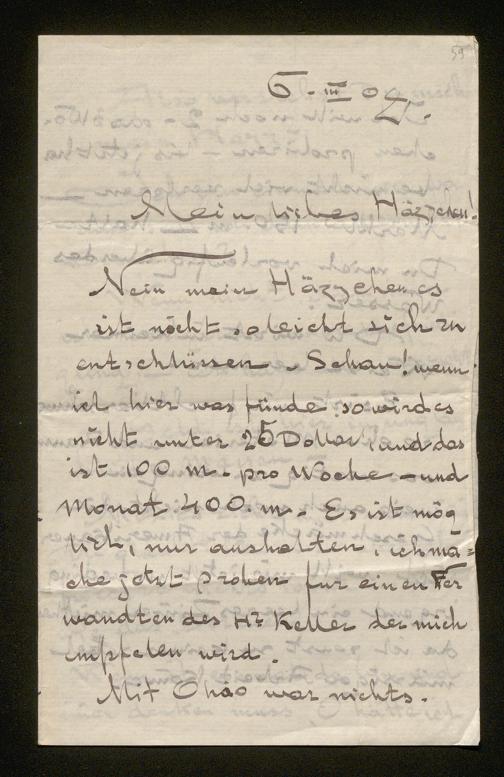 59
6. III 07.
Mein liebes Häzzchen!
Nein mein Häzzchen es
ist nöcht so leicht sich zu
entschlüssen. Schau! wenn
ich hier was fünde so wird es
nicht unter 25 Dollar, und das
ist 100 m. pro Woche - und
Monat 400. m. Es ist mög
lich, nur aushalten, ich ma=
che jetzt Proben fur einen Ver
wandten des Hr Keller der mich
empfelen wird.
Mit Ohao war nichts.